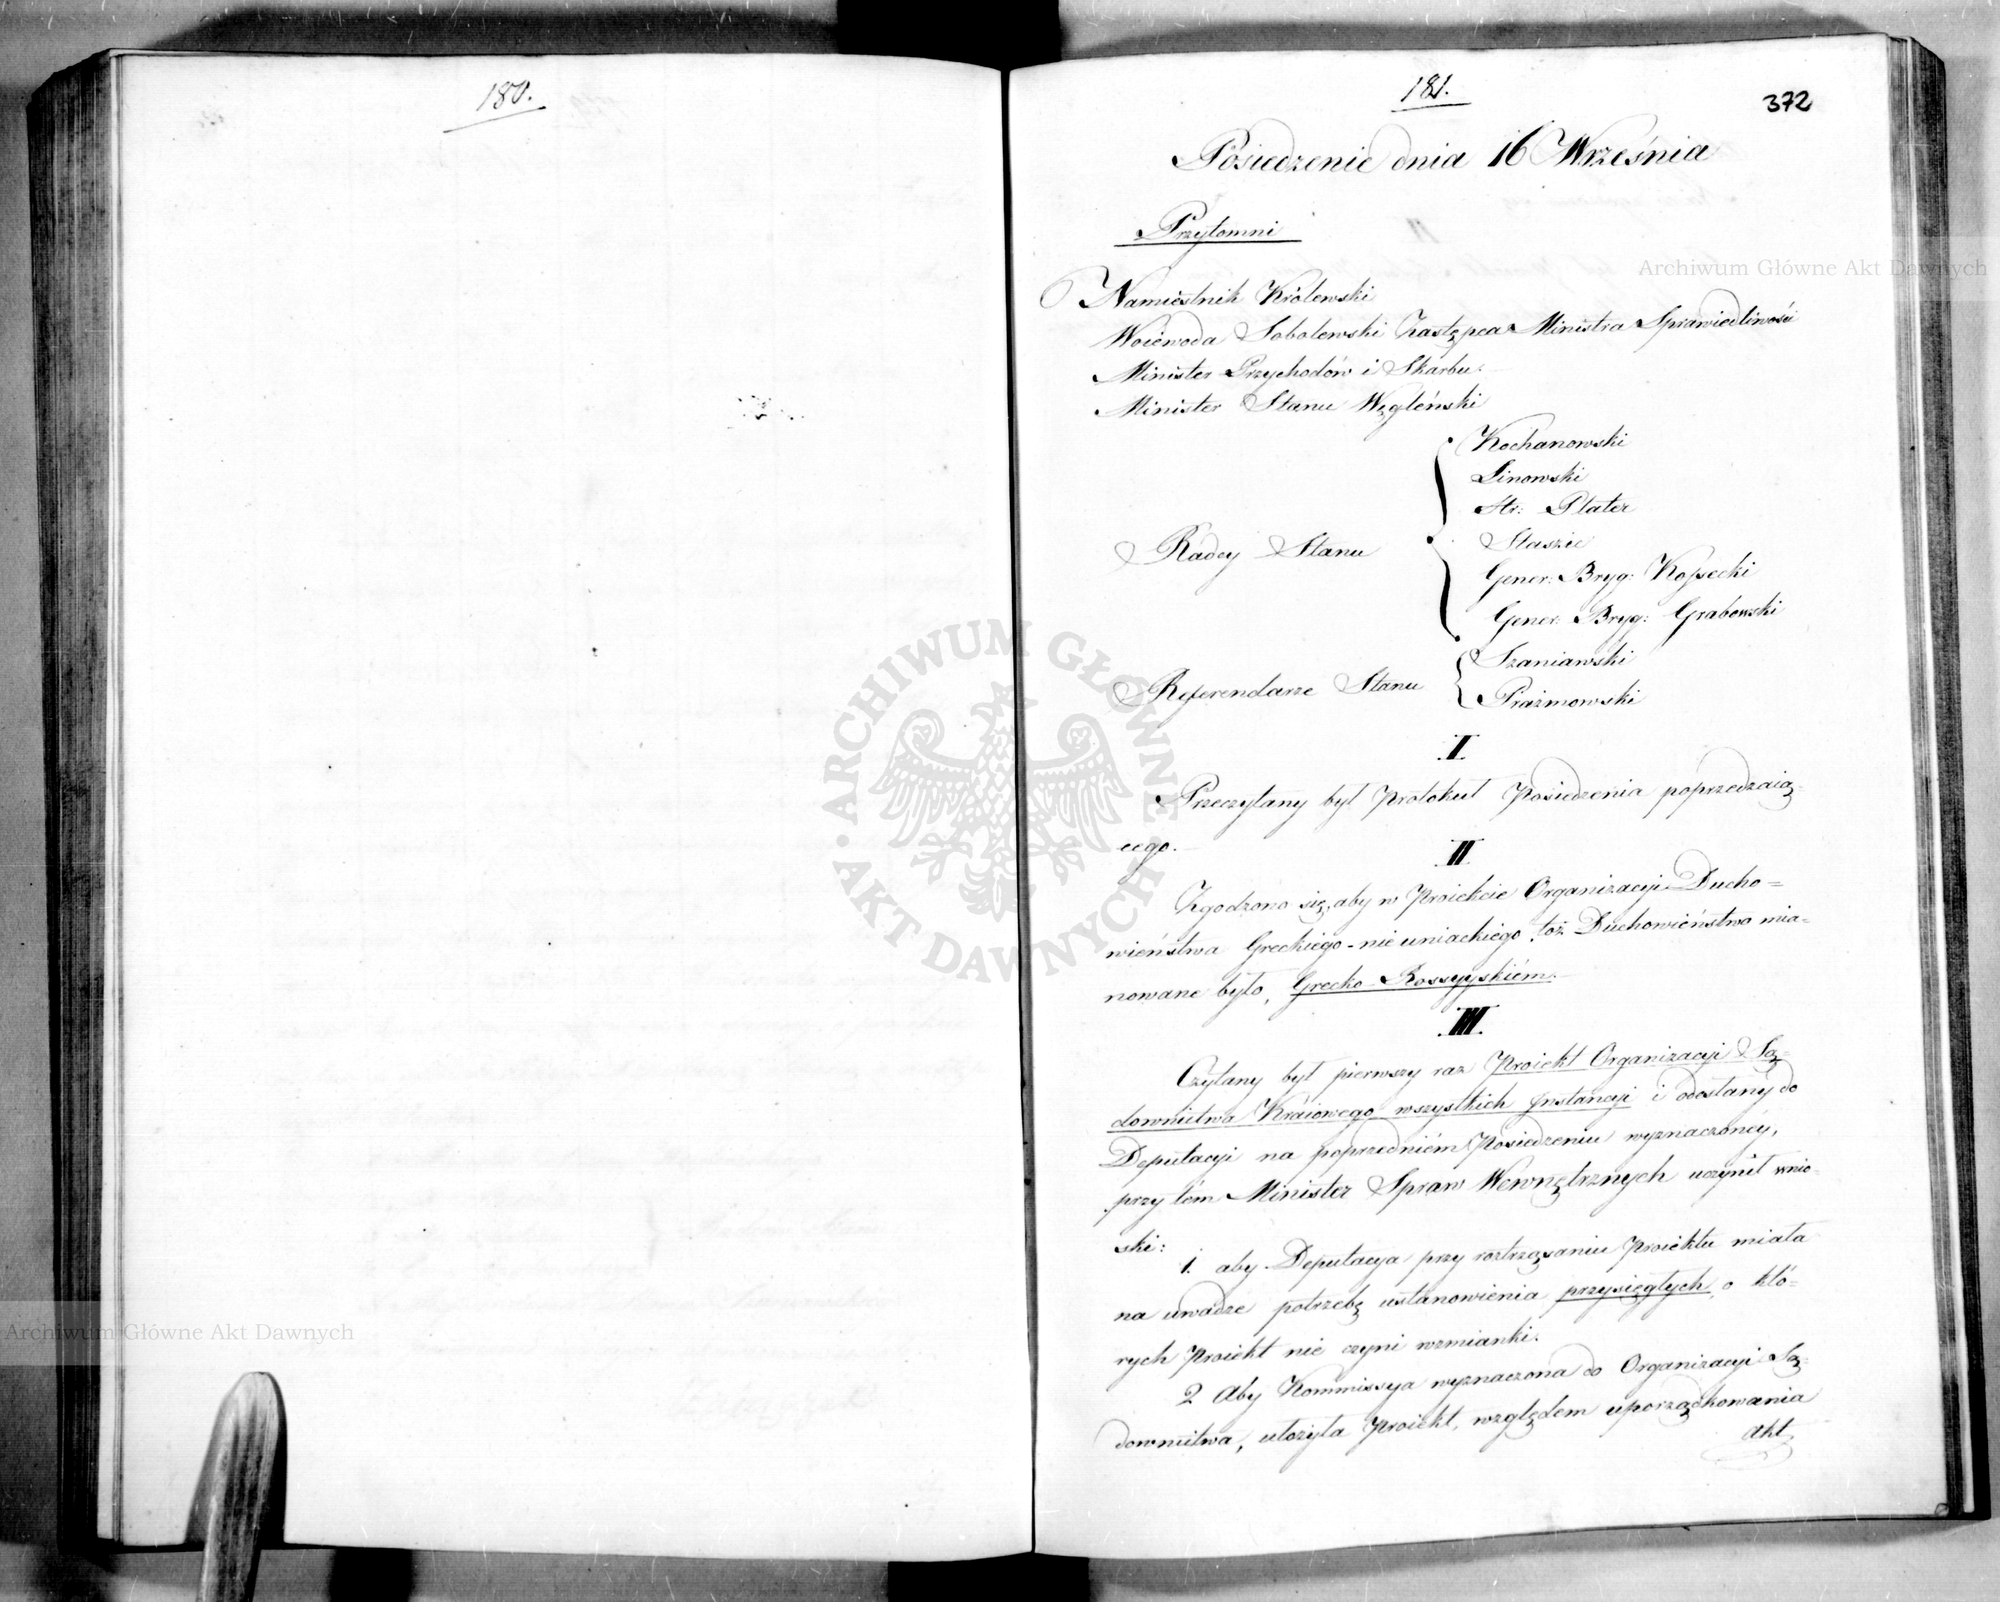 180.
181.
372
Posiedzenie dnia 16 Września
Przytomni
Namiestnik Królewski
Woiewoda Sobolewski Zastępca Ministra Sprawiedliwości
Minister Przychodów i Skarbu.
Minister Stanu Węgleński
Radcy Stanu
Kochanowski
Linowski
Hr: Plater
Staszic
Gener: Bryg: Kossecki
Gener: Bryg: Grabowski
Referendarze Stanu
Szaniawski
Prażmowski
I
Przeczytany był Protokuł Posiedzenia poprzedzaią-
cego.
II
Zgodzono się, aby w Proiekcie Organizacyi Ducho=
wieństwa Greckiego-nieuniackiego, toż Duchowieństwo mia=
nowane było, Grecko-Rossyyskiém.
III.
Czytany był pierwszy raz Proiekt Organizacyi Są=
downictwa Kraiowego wszystkich Instancyi i odesłany do
Deputacyi na poprzedniém Posiedzeniu wyznaczonéy,
przy tém Minister Spraw Wewnętrznych uczynił wnio-
ski:
1. aby Deputacya przy roztrząsaniu Proiektu miała
na uwadze potrzebę ustanowienia przysięgłych, o któ=
rych Proiekt nie czyni wzmianki.
2 Aby Kommissya wyznaczona do Organizacyi Są=
downictwa, ułożyła Proiekt, względem uporządkowania
Akt
Archiwum Główne Akt Dawnych
Archiwum Główne Akt Dawnych
ARCHIWUM GŁÓWNE
AKT DAWNYCH